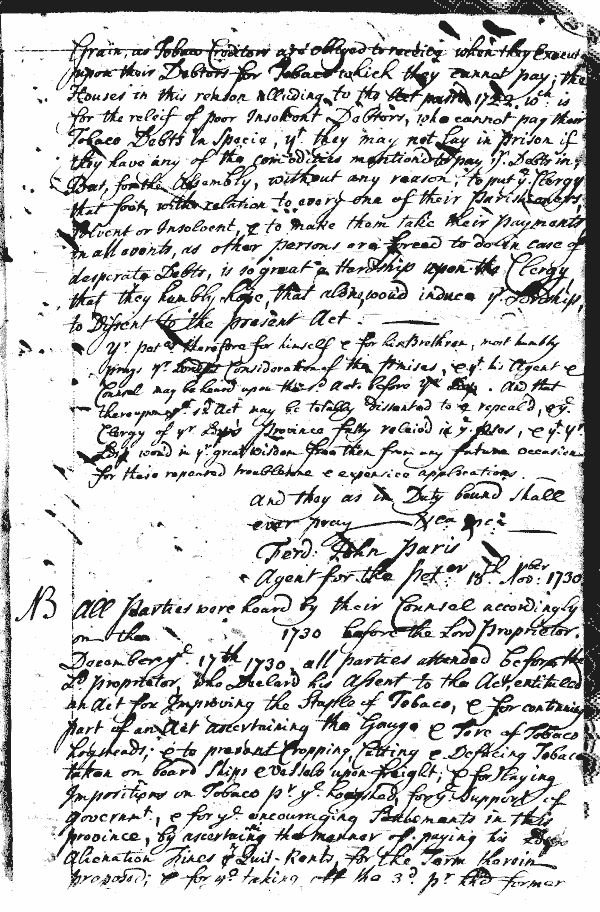 Grain, as Tobaco Creditors are obliged to receive when they Execute
upon their Debtors for Tobaco which they cannot pay; the
Houses in this reason alluding to the last Act 1729 wch is
for the releif of poor Insolvent Debtors, who cannot pay their
Tobaco Debts in Specie, yt they may not lay in prison if
they have any of the comodities mentiond to pay yr Debts in;
But, for the Assembly, without any reason, to put ye Clergy
that foot, with relation to every one of their Parishioners,
Solvent or Insolvent, & to make them take their payments
in all events, as other persons are forced to do in case of
desperate Debts, is so great a Hardship upon the Clergy
that they humbly hope, that alone, woud induce yr Lordship,
to Dissent to the present Act.
Yr Petr therefore for himself & for his Brethren, most humbly
prays yr Lordsps Consideration of the premises, & yt his Agent &
Counsel may be heard upon this sd Act, before yr Ldsp. And that
thereupon ye sd Act may be totally dissented to & repeal'd, & ye
Clergy of yr Ldsps Province fully releivd in ye premises, & yt yr
Ldsp woud in yr great Wisdom free them from any future occasion
for these repeated troublesome & expensive applications
And they as in Duty bound shall
ever pray &ca &ca
Ferd: John Paris
Agent for the Petr: 18th Novber: 1730
NB All Parties were heard by their Counsel accordingly
on the 1730 before the Lord Proprietor.
December ye 17th 1730, all parties attended before the
Ld proprietor, who Declard his Assent to the Act entituled
an Act for Improving the Staple of Tobaco, & for continuing
part of an Act ascertaining the Gauge & Tare of Tobaco
hogsheads; & to prevent Cropping, Cutting & Defacing Tobaco
taken on board Ships & Vessels upon freight; & for laying
Impositions on Tobaco pr ye hogshead, for ye Support of
Governmt, & for ye encouraging Tenements in this
province, by ascertaining the manner of paying his Ldsps
Alienation Fines & Quit-Rents, for the Term therein
proposed; & for ye taking off the 3d pr hhd former